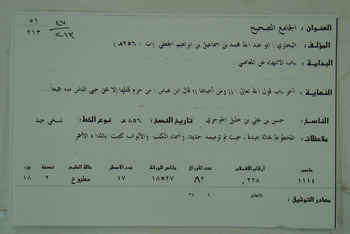 ٥١
٢١٣
٤٧
٢١٣
العنوان : الجامع الصحيح
المؤلف : البخاري : ابو عبد الله محمد بن اسماعيل بن ابراهيم الجعفي (ت : ٢٥٦هـ)
البداية : باب الانتهاء عن المعاصي
النهاية : آخر باب قول الله تعالى : ((ومن أحياها)) قال ابن عباس : من حرم قتلها إلا بحق حيي الناس منه جميعاً...
الناسخ : حسن بن علي بن خليل تاريخ النسخ : ٨٥٦هـ نوع الخط : نسخي جيد
ملاحظات : المخطوط بحالة جيدة ، حيث تم ترميمه حديثا ، وأسماء الكتب والأبواب كتبت بالمداد الأحمر
حاسب أرقام الأفلام عدد الأوراق مقاس الورقة عدد الأسطر حالة الطبع نسخة جزء
١١١٤ ٢٢٨ ٩٢ ٢٧×١٨ ١٧ مطبوع ٢ ١٨
مصادر التوثيق : الاعلام ٦ ٣٤